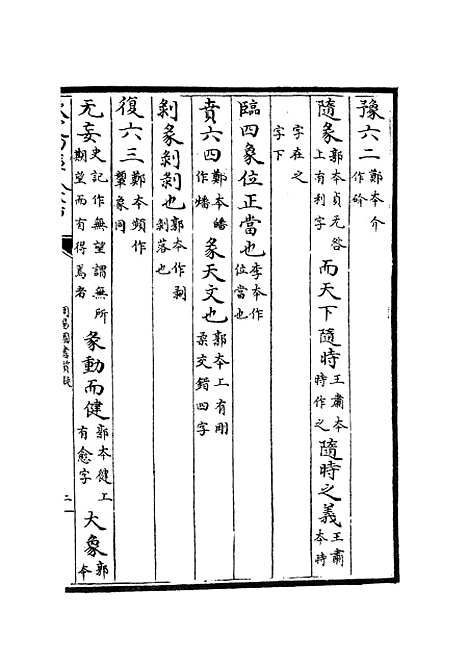 豫六二鄭本介作砎
隨彖郭本貞无咎上有利字而天下隨時王肅本時作之隨時之義王肅本時
字在之字下
臨四象位正當也李本作位當也
賁六四鄭本皤作燔彖天文也郭本上有剛柔交錯四字
剝彖剝剝也郭本作剝剝落也
復六三鄭本頻作顰象同
无妄史記作無望謂無所期望而有得焉者彖動而健郭本健上有愈字大象郭本
周易圖書質疑